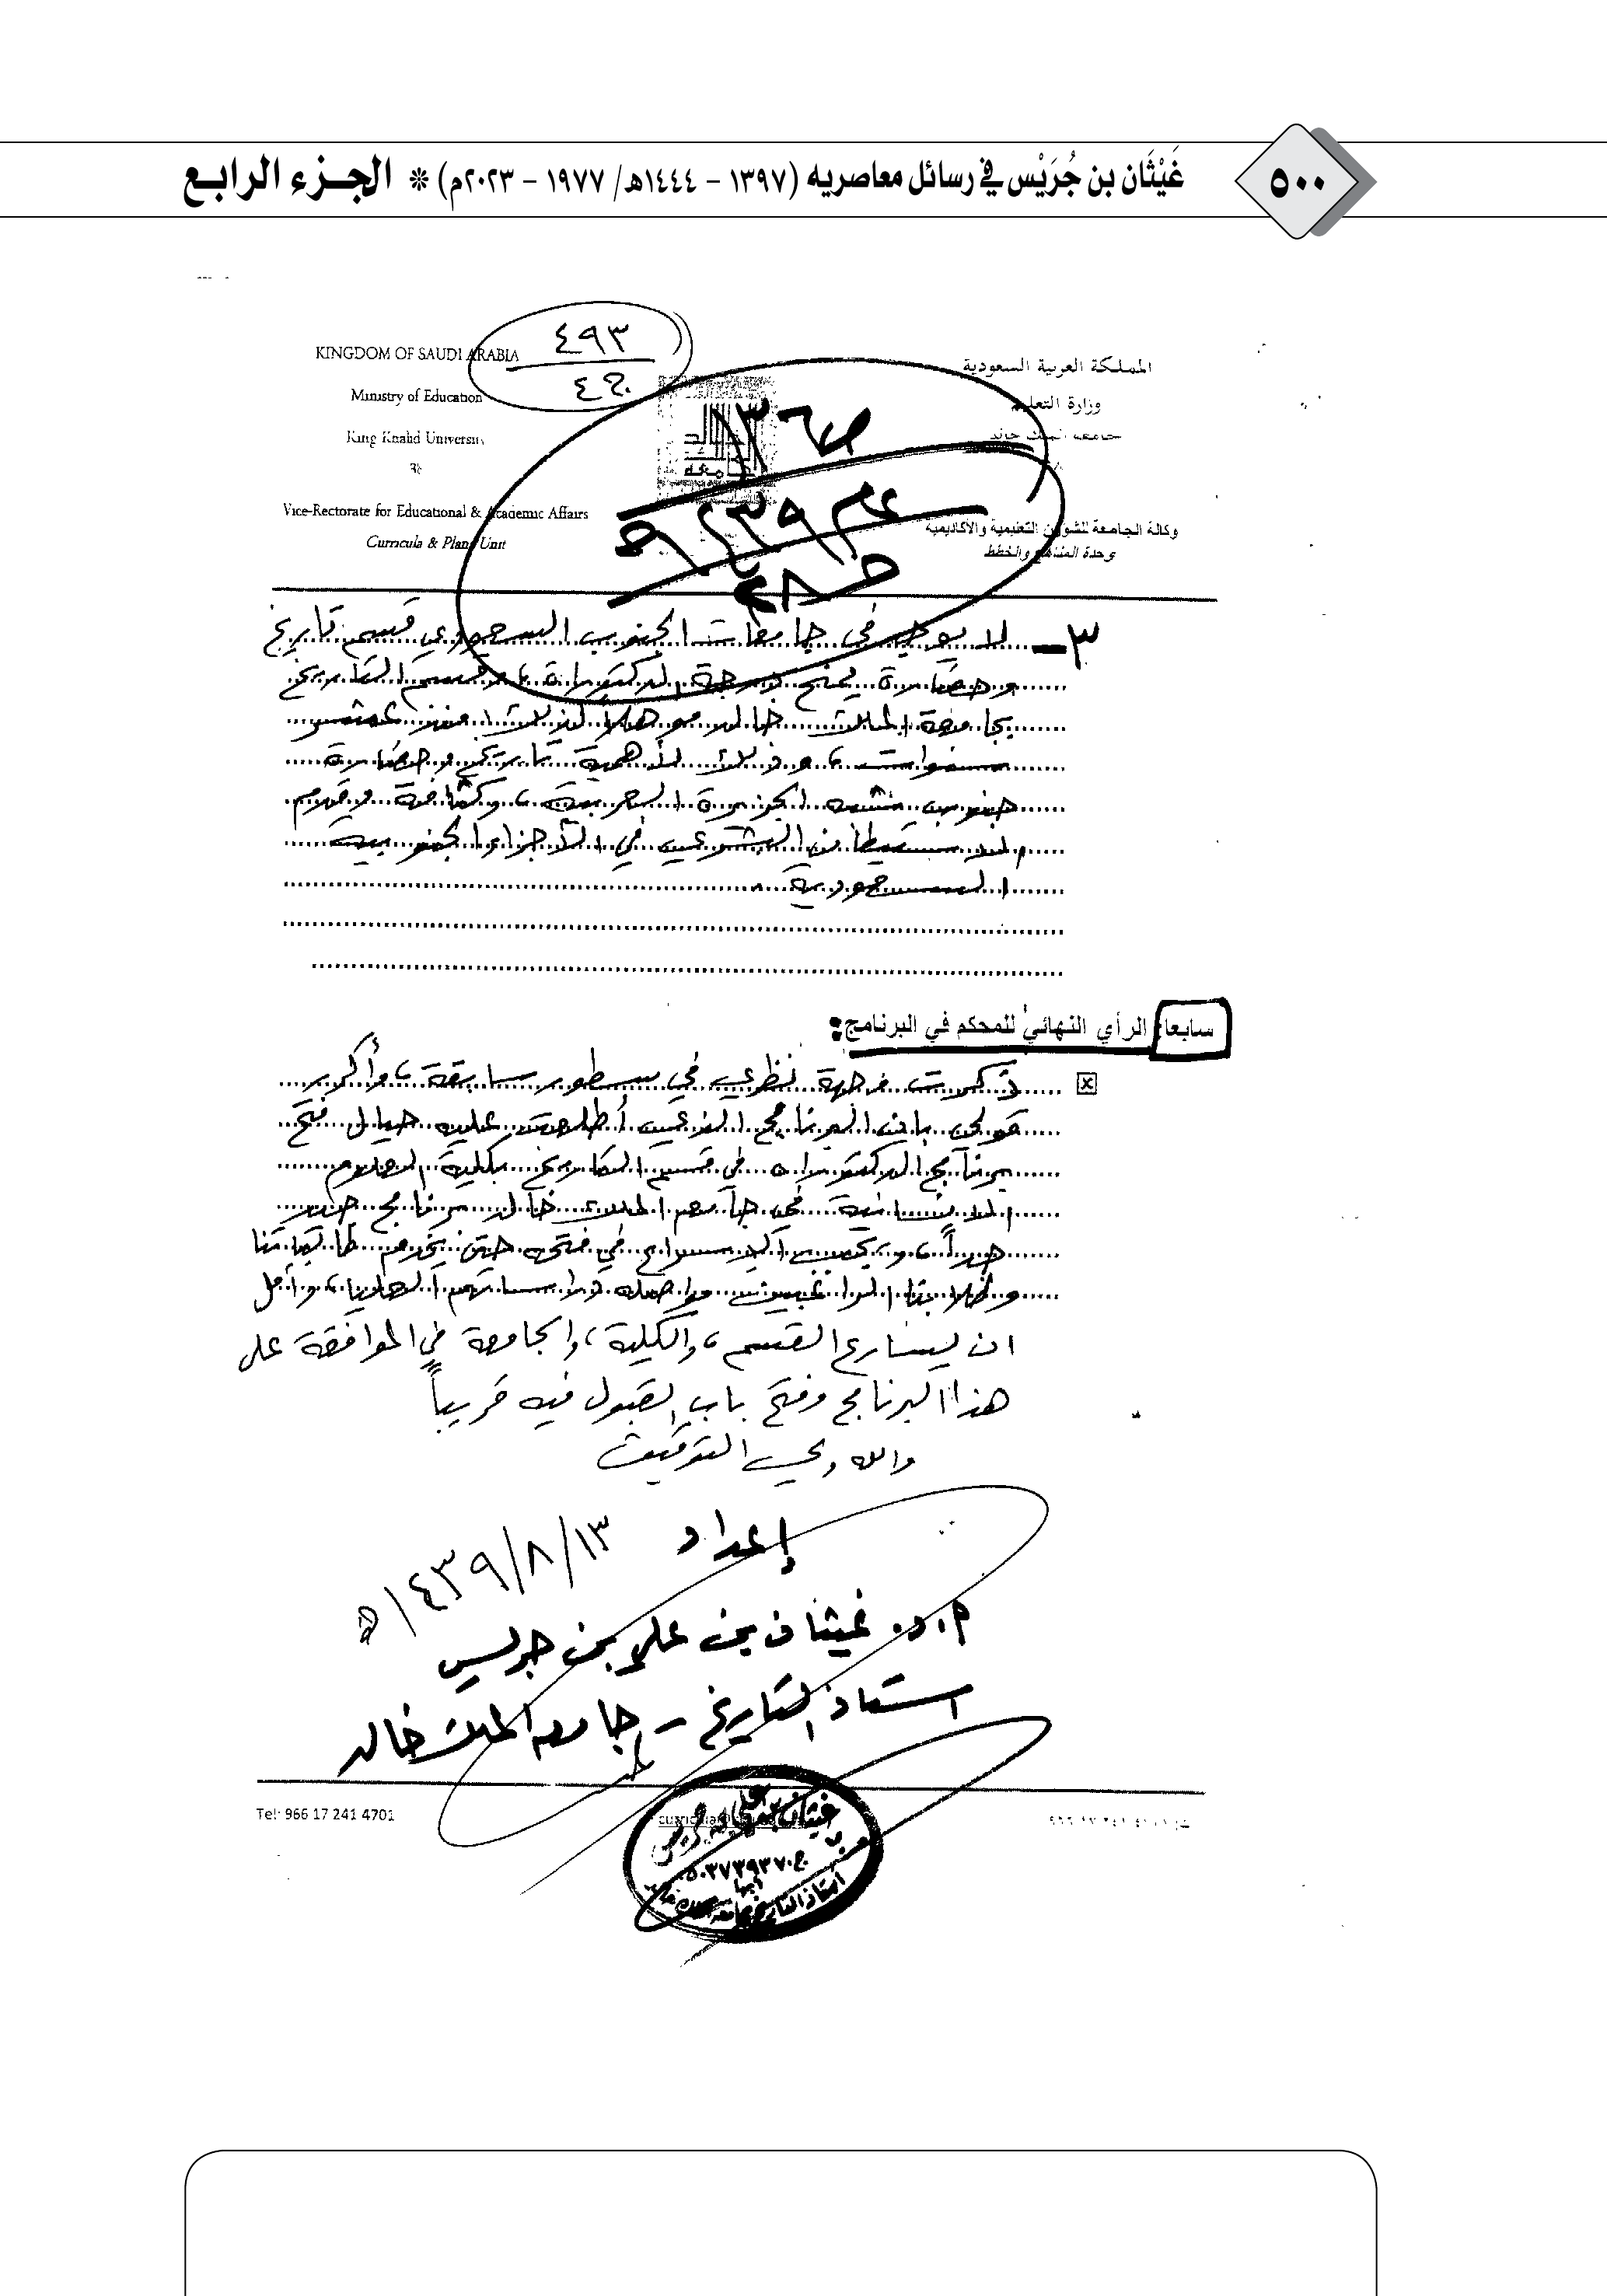 غَيْثَان بن جُرَيْس في رسائل معاصريه (١٣٩٧ – ١٤٤٤هـ/ ١٩٧٧ – ٢٠٢٣م) * الجزء الرابع
٥٠٠
٤٩٣
KINGDOM OF SAUDI ARABIA
Ministry of Education
King Khalid University
Vice-Rectorate for Educational & Academic Affairs
Curricula & Plans Unit
المملكة العربية السعودية
وزارة التعليم
جامعة الملك خالد
وكالة الجامعة للشؤون التعليمية والأكاديمية
وحدة المناهج والخطط
٣ - لا يوجد في جامعات الجنوب السعودي قسم تاريخ
وحضارة يمنح درجة الدكتوراة، وقسم التاريخ
بجامعة الملك خالد مؤهلاً لذلك منذ عشر
سنوات، وذلك لأهمية تاريخ وحضارة
جنوب شبه الجزيرة العربية، وكثافة وقدم
الاستيطان البشري في الأجزاء الجنوبية
السعودية.
سابعا: الرأي النهائي للمحكم في البرنامج:
ذكرت وجهة نظري في سطور سابقة، وأكرر
قولي بان البرنامج الذي أطلعت عليه حيال فتح
برنامج الدكتوراه في قسم التاريخ بكلية العلوم
الانسانية في جامعة الملك خالد برنامج جيد
جداً، ويجب الإسراع في فتحه حتى يخدم طالباتنا
وطلابنا الراغبين مواصلة دراساتهم العليا، وآمل
ان يسارع القسم، والكلية، والجامعة في الموافقة على
هذا البرنامج وفتح باب القبول فيه قريباً
والله ولي التوفيق
إعداد ١٣/٨/١٤٣٩هـ
أ.د. غيثان بن علي بن جريس
استاذ التاريخ - جامعة الملك خالد
Tel: 966 17 241 4701
غيثان بن علي بن جريس
أستاذ التاريخ بجامعة الملك خالد